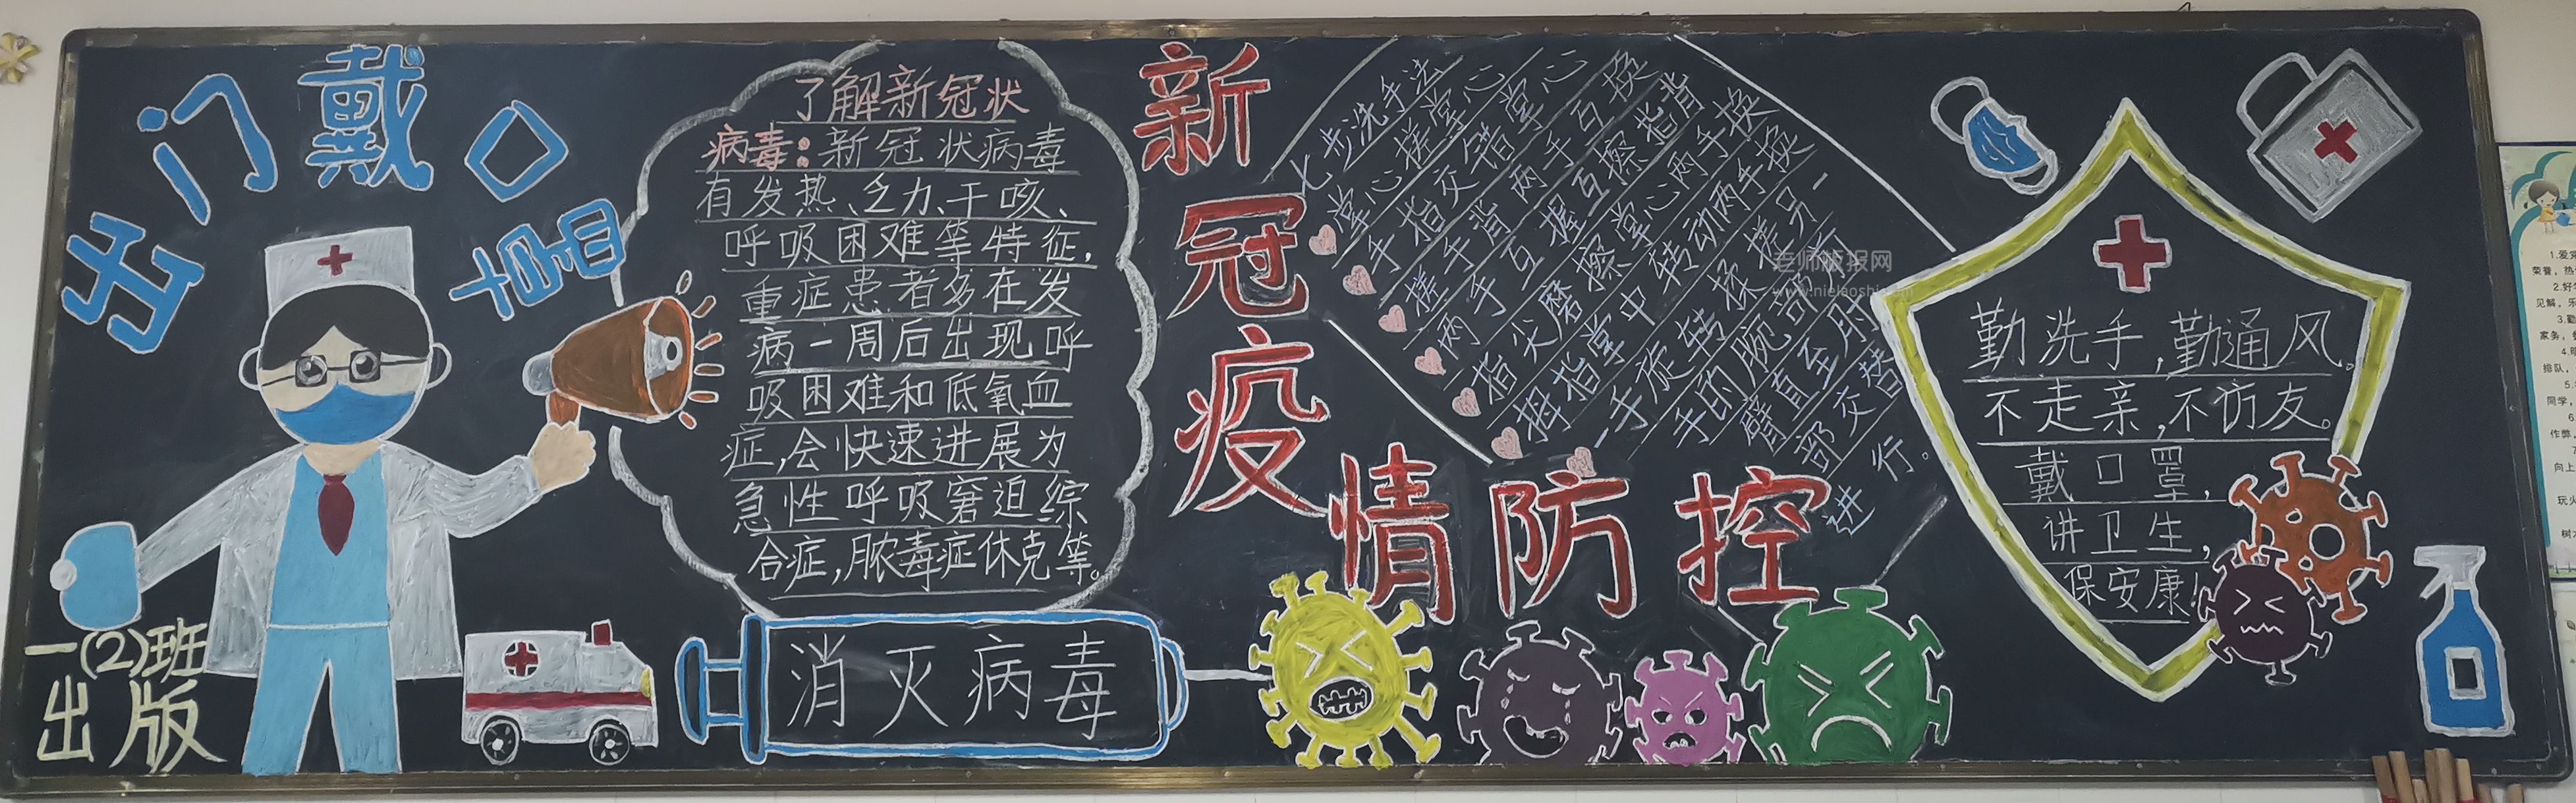 出门戴口罩
一(2)班
出版
了解新冠状
病毒：新冠状病毒
有发热、乏力、干咳、
呼吸困难等特征，
重症患者多在发
病一周后出现呼
吸困难和低氧血
症，会快速进展为
急性呼吸窘迫综
合症，脓毒症休克等。
消灭病毒
新冠疫情防控
七步洗手法
掌心搓掌心
手指交错掌心
搓手背两手互换
两手互握互擦指背
指尖磨擦掌心两手换
拇指掌中转动两手换
一手旋转揉搓另一
手的腕可
臂直至肘
部交替
进行。
老师板报网
勤洗手，勤通风。
不走亲，不访友。
戴口罩，
讲卫生，
保安康！